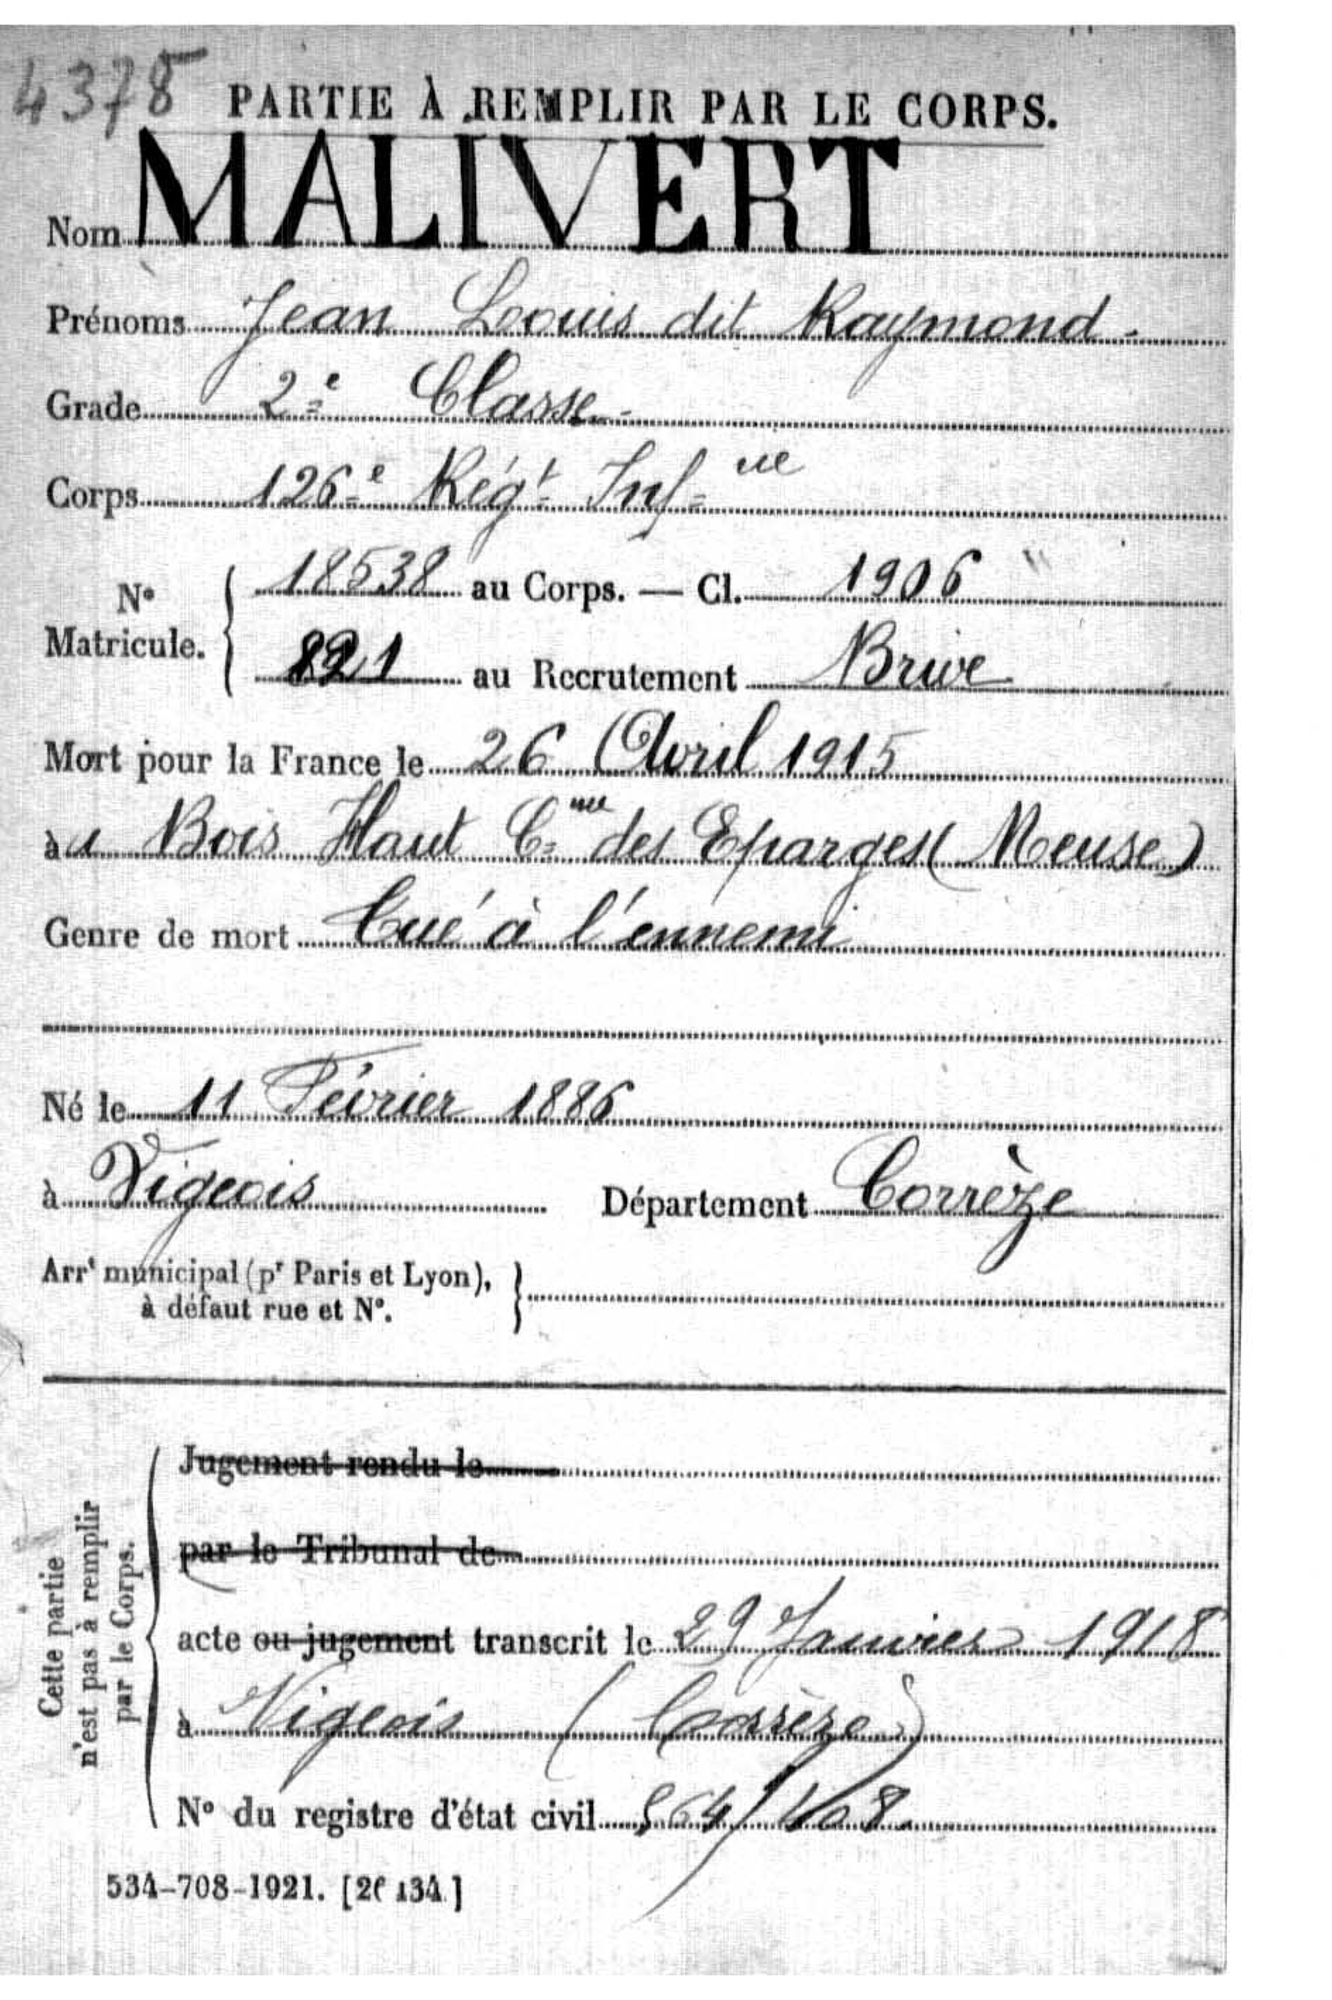 4378
PARTIE À REMPLIR PAR LE CORPS.
Nom MALIVERT
Prénoms Jean Louis dit Raymond
Grade 2e Classe
Corps 126e Régt Infie
N° Matricule.
18538 au Corps. — Cl. 1906
821 au Recrutement Brive
Mort pour la France le 26 Avril 1915
au Bois Haut Cne des Eparges (Meuse)
Genre de mort Tué à l'ennemi
Né le 11 Février 1886
à Vigeois Département Corrèze
Arrt municipal (pr Paris et Lyon),
à défaut rue et N°.
Cette partie
n'est pas à remplir
par le Corps.
Jugement rendu le
par le Tribunal de
acte ou jugement transcrit le 29 Janvier 1918
à Vigeois (Corrèze)
N° du registre d'état civil
534-708-1921.